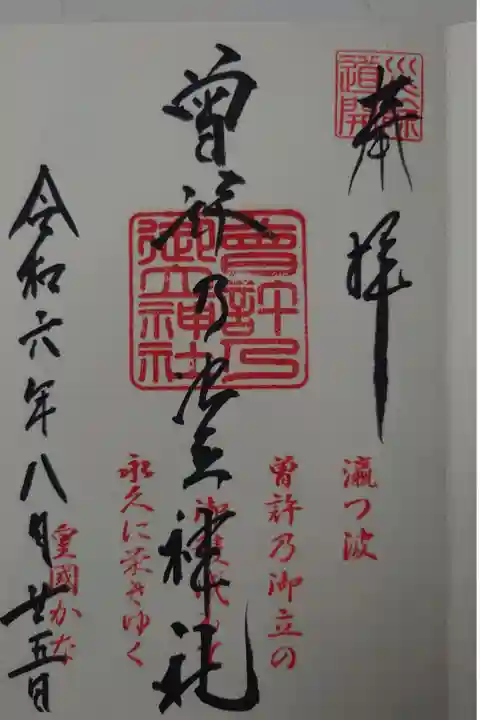 災除
道開
奉拝
曾許乃御立神社
曾許乃
御立神社
瀛つ波
曽許乃御立の
永久に栄きゆく
皇國かな
令和六年八月廿五日